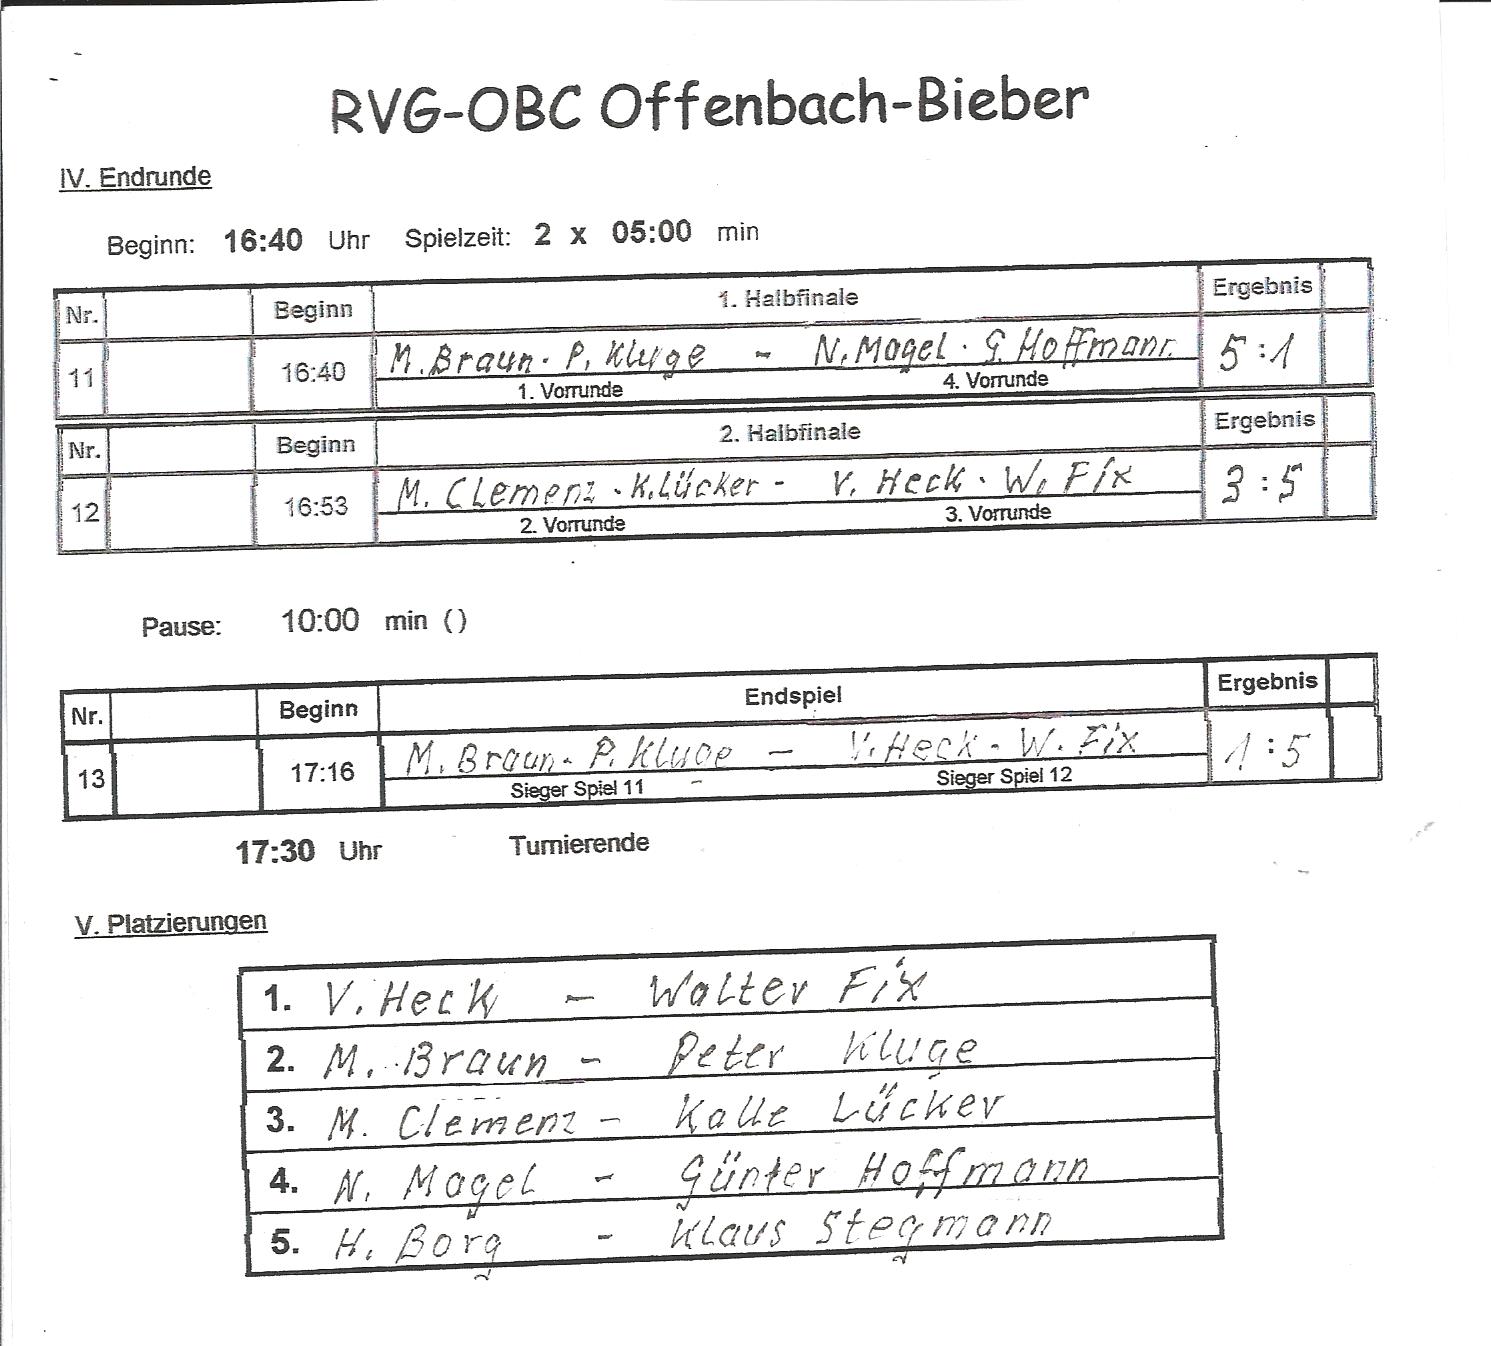 RVG-OBC Offenbach-Bieber
IV. Endrunde
Beginn: 16:40 Uhr Spielzeit: 2 x 05:00 min
Nr. Beginn 1. Halbfinale Ergebnis
11 16:40 M. Braun - P. Kluge - N. Magel - G. Hoffmann 5:1
1. Vorrunde 4. Vorrunde
Nr. Beginn 2. Halbfinale Ergebnis
12 16:53 M. Clemenz - K. Lücker - V. Heck - W. Fix 3:5
2. Vorrunde 3. Vorrunde
Pause: 10:00 min ()
Nr. Beginn Endspiel Ergebnis
13 17:16 M. Braun - P. Kluge - V. Heck - W. Fix 1:5
Sieger Spiel 11 - Sieger Spiel 12
17:30 Uhr Turnierende
V. Platzierungen
1. V. Heck - Walter Fix
2. M. Braun - Peter Kluge
3. M. Clemenz - Kalle Lücker
4. N. Magel - Günter Hoffmann
5. H. Borg - Klaus Stegmann